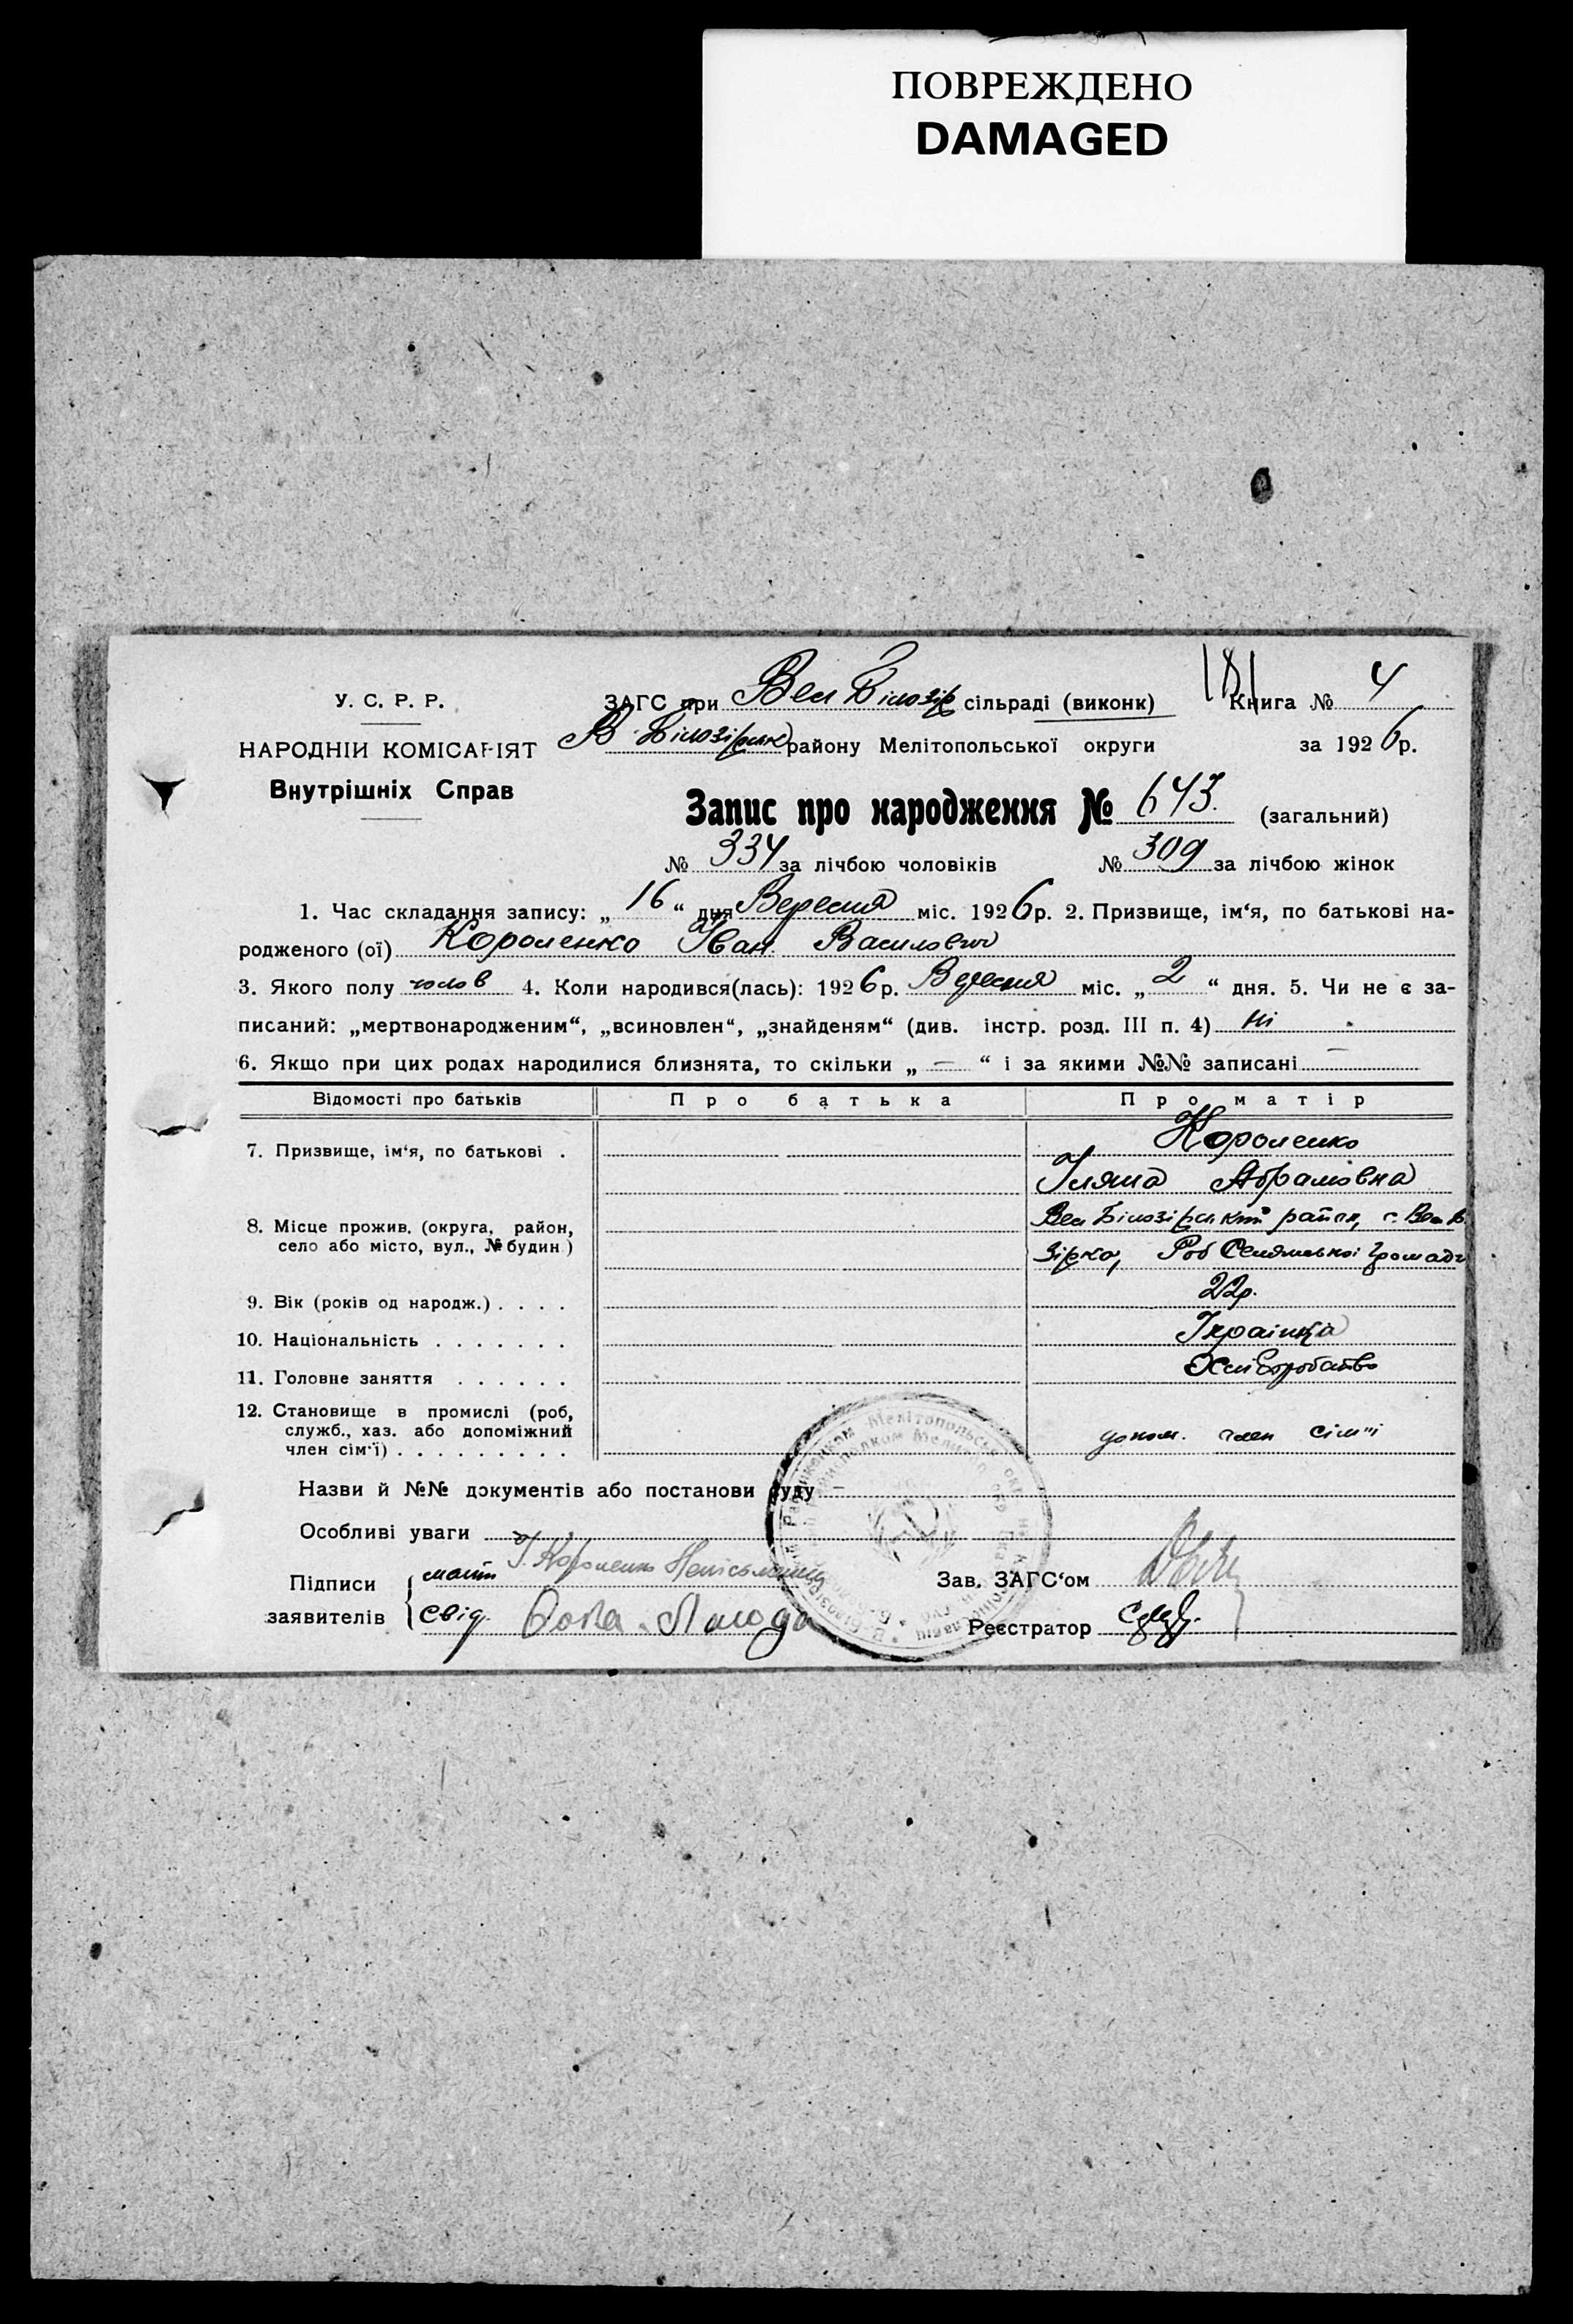 ПОВРЕЖДЕНО
DAMAGED
У. С. Р. Р.
НАРОДНІЙ КОМІСАРІЯТ
Внутрішніх Справ
ЗАГС при Вел Білозір сільраді (виконк)
181
Книга № 4
В Білозірськ району Мелітопольської округи
за 1926р.
Запис про народження № 643. (загальний)
№ 334 за лічбою чоловіків № 309 за лічбою жінок
1. Час складання запису: „ 16 “ дня Вересня міс. 1926р. 2. Призвище, ім‘я, по батькові на-
родженого (ої) Короленко Іван Васильович
3. Якого полу чолов 4. Коли народився(лась): 1926р. Вересня міс. „ 2 “ дня. 5. Чи не є за-
писаний: „мертвонародженим“, „всиновлен“, „знайденям“ (див. інстр. розд. III п. 4) Ні
6. Якщо при цих родах народилися близнята, то скільки „ — “ і за якими №№ записані —
Відомості про батьків Про батька Про матір
7. Призвище, ім‘я, по батькові . Короленко
Уляна Абрамовна
8. Місце прожив. (округа, район,
село або місто, вул., № будин.)
Вел Білозірський район, с. Вел Б
зірка, Селянської громади
9. Вік (років од народж.) . . . . 22р.
10. Національність . . . . . . . Українка
11. Головне заняття . . . . . . Хліборобство
12. Становище в промислі (роб,
служб., хаз. або допоміжний
член сім‘ї) . . . . . . . . . допом. член сім"ї
Назви й №№ документів або постанови суду —
Особливі уваги
Підписи
заявителів
мати Короленко Неписьменна
Свід.
Зав. ЗАГС‘ом
Реєстратор